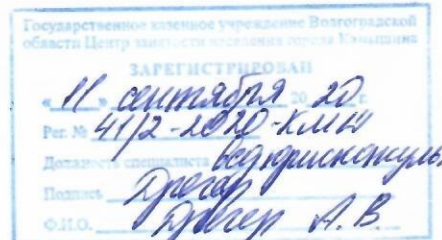 Государственное казенное учреждение Волгоградской
области Центр занятости населения города Камышина
ЗАРЕГИСТРИРОВАН
« 11 » сентября 20 20 г.
Рег. № 41/2-2020-КМШ
Должность специалиста вед.юрисконсуль
Подпись
Ф.И.О. А.В.